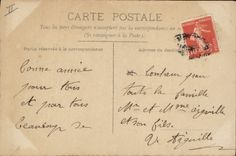 II
CARTE POSTALE
Tous les pays étrangers n'acceptent pas la correspondance au recto
(Se renseigner à la Poste)
Partie réservée à la correspondance
Adresse du
Bonne année
pour tous
et pour tous
beaucoup de
bonheur pour
toute la famille
Mr et Mme Aiguille
et son fils.
V Aiguille